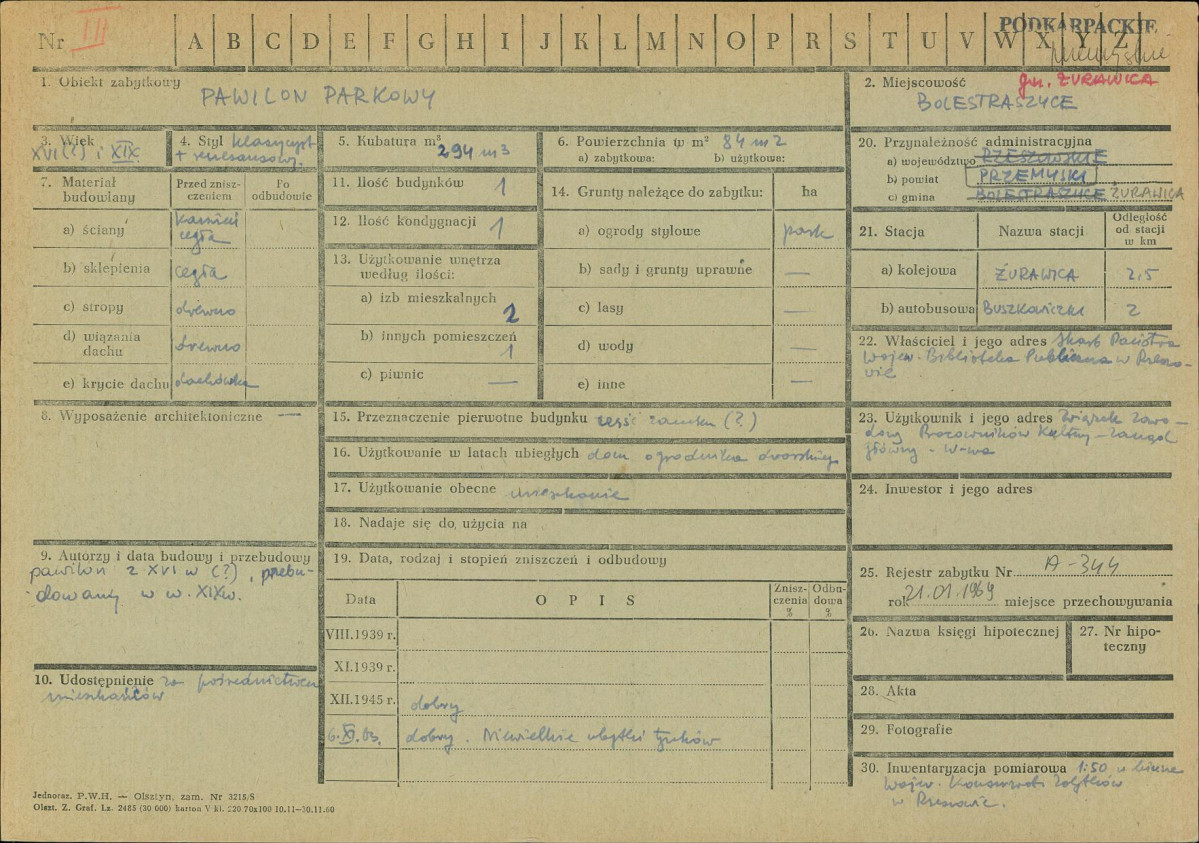 Nr III A B C D E F G H I J K L M N O P R S T U V W X Y Z
PODKARPACKIE
przemyskie
1. Obiekt zabytkowy
PAWILON PARKOWY
2. Miejscowość gm. ŻURAWICA
BOLESTRASZYCE
3. Wiek
XVI (?) i XIX
4. Styl klasycyst.
+ renesansowy.
5. Kubatura m³
294 m3
6. Powierzchnia w m² 84 m2
a) zabytkowa: b) użytkowa:
7. Materiał budowlany
Przed zniszczeniem
Po odbudowie
a) ściany kamień
cegła
b) sklepienia cegła
c) stropy drewno
d) wiązania
dachu drewno
e) krycie dachu dachówka
8. Wyposażenie architektoniczne —
9. Autorzy i data budowy i przebudowy
pawilon z XVI w (?), przebu-
dowany w w. XIXw.
10. Udostępnienie za pośrednictwem
mieszkańców
11. Ilość budynków 1
12. Ilość kondygnacji 1
13. Użytkowanie wnętrza
według ilości:
a) izb mieszkalnych
2
b) innych pomieszczeń
1
c) piwnic —
14. Grunty należące do zabytku: ha
a) ogrody stylowe park
b) sady i grunty uprawne —
c) lasy —
d) wody —
e) inne —
15. Przeznaczenie pierwotne budynku część zamku (?)
16. Użytkowanie w latach ubiegłych dom ogrodnika dworskiego
17. Użytkowanie obecne mieszkanie
18. Nadaje się do użycia na
19. Data, rodzaj i stopień zniszczeń i odbudowy
Data OPIS Zniszczenia % Odbudowa %
VIII.1939 r.
XI.1939 r.
XII.1945 r. dobry
6.XI.63. dobry. Niewielkie ubytki tynków
20. Przynależność administracyjna
a) województwo RZESZOWSKIE
b) powiat PRZEMYSKI
c) gmina BOLESTRASZYCE ŻURAWICA
21. Stacja Nazwa stacji Odległość od stacji w km
a) kolejowa ŻURAWICA 2,5
b) autobusowa BUSZKOWICZKI 2
22. Właściciel i jego adres Skarb Państwa
Wojew. Biblioteka Publiczna w Rzeszo-
wie
23. Użytkownik i jego adres Związek Zawo-
dowy Pracowników Kultury - Zarząd
główny - W-wa
24. Inwestor i jego adres
25. Rejestr zabytku Nr A-344
rok 21.01.1969 miejsce przechowywania
26. Nazwa księgi hipotecznej
27. Nr hipo-
teczny
28. Akta
29. Fotografie
30. Inwentaryzacja pomiarowa 1:50 u biurze
Wojew. Konserwat. Zabytków
w Rzeszowie.
Jednoraz. P.W.H. — Olsztyn, zam. Nr 3215/S
Olszt. Z. Graf. Lz. 2485 (30 000) karton V kl. 220 70x100 10.11—30.11.60